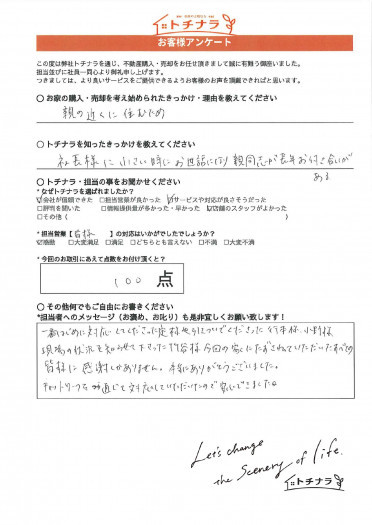 トチナラ
お客様アンケート
この度は弊社トチナラを通じ、不動産購入・売却をお任せ頂きまして誠に有難う御座いました。
担当並びに社員一同心より御礼申し上げます。
つきましては、より良いサービスをご提供できるようお客様のお声を頂戴できればと思います。
〇 お家の購入・売却を考え始められたきっかけ・理由を教えてください
親の近くに住むため
〇 トチナラを知ったきっかけを教えてください
社長様に小さい時にお世話になり親同志が長年お付き合いが
ある
〇 トチナラ・担当の事をお聞かせください
*なぜトチナラを選ばれましたか?
☑会社が信頼できた □担当営業が良かった ☑サービスや対応が良さそうだった
□評判を聞いた □情報提供量が多かった・早かった ☑店舗のスタッフがよかった
□その他(
*担当営業【皆様】の対応はいかがでしたでしょうか?
☑感動 □大変満足 □満足 □どちらとも言えない □不満 □大変不満
*今回のお取引にあえて点数をお付け頂くと?
100点
〇 その他何でもご自由にお書きください
*担当者へのメッセージ(お褒め、お叱り)も是非宜しくお願い致します!
対応してくださった
現場の状況を知らせて下さった 今回の家にたずさわっていただいたすべての
皆様に感謝しかありません。本当にありがとうございました。
通じて対応していただいたので安心できました。
Let's change
the Scenery of life.
トチナラ